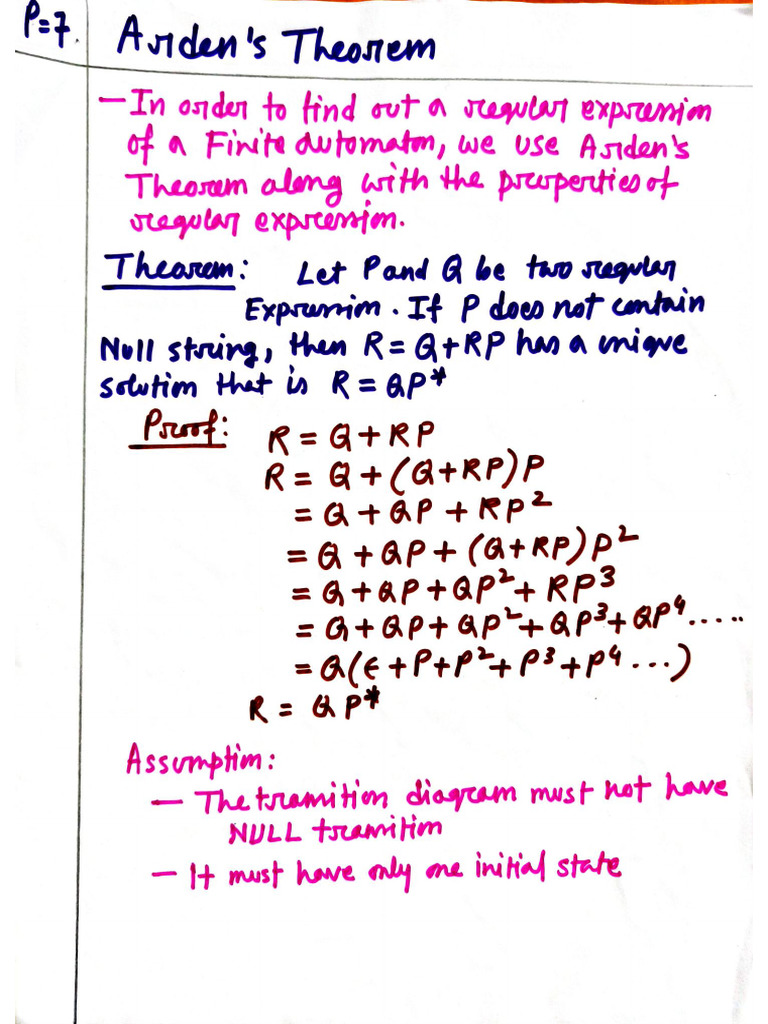 P=7.
Arden's Theorem
- In order to find out a regular expression
of a Finite Automaton, we use Arden's
Theorem along with the properties of
regular expression.
Theorem: Let P and Q be two regular
Expression. If P does not contain
Null string, then R = Q + RP has a unique
solution that is R = QP*
Proof: R = Q + RP
R = Q + (Q+RP)P
= Q + QP + RP²
= Q + QP + (Q+RP)P²
= Q + QP + QP² + RP³
= Q + QP + QP² + QP³ + QP⁴ .....
= Q(ϵ + P + P² + P³ + P⁴ ...)
R = QP*
Assumption:
- The transition diagram must not have
NULL transition
- It must have only one initial state